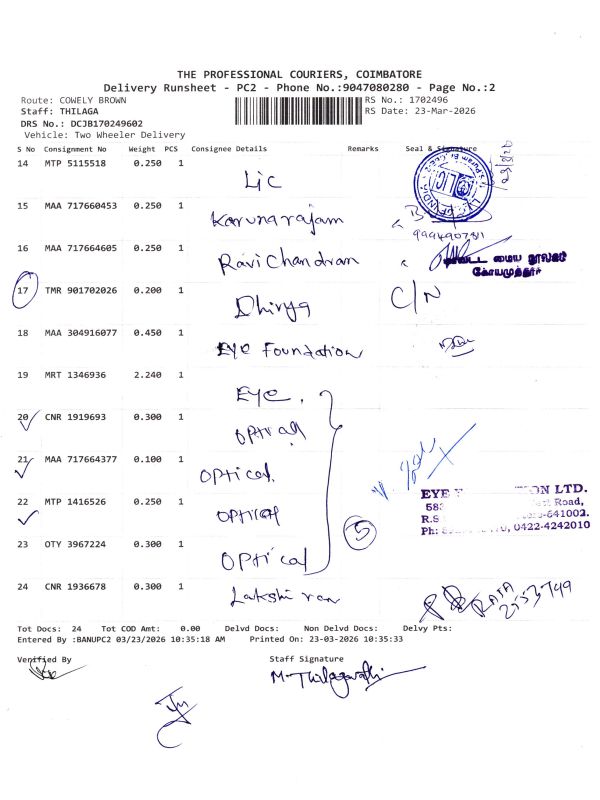 THE PROFESSIONAL COURIERS, COIMBATORE
Delivery Runsheet - PC2 - Phone No.:9047080280 - Page No.:2
Route: COWELY BROWN RS No.: 1702496
Staff: THILAGA RS Date: 23-Mar-2026
DRS No.: DCJB170249602
Vehicle: Two Wheeler Delivery
S No Consignment No Weight PCS Consignee Details Remarks Seal & Signature
14 MTP 5115518 0.250 1 Lic
15 MAA 717660453 0.250 1 Karunarajam
16 MAA 717664605 0.250 1 Ravi Chandran மைய நூலகம்
கோயமுத்தூர்
17 TMR 901702026 0.200 1 Dhivya C/N
18 MAA 304916077 0.450 1 EYE Foundation
19 MRT 1346936 2.240 1 EYE,
20 CNR 1919693 0.300 1 OPtical
21 MAA 717664377 0.100 1 OPtical.
22 MTP 1416526 0.250 1 OPtical
EYE ON LTD.
R.S 641002.
Ph: 0422-4242010
5
23 OTY 3967224 0.300 1 OPtical
24 CNR 1936678 0.300 1
Tot Docs: 24 Tot COD Amt: 0.00 Delvd Docs: Non Delvd Docs: Delvy Pts:
Entered By :BANUPC2 03/23/2026 10:35:18 AM Printed On: 23-03-2026 10:35:33
Verified By Staff Signature
M. Thilagavathi